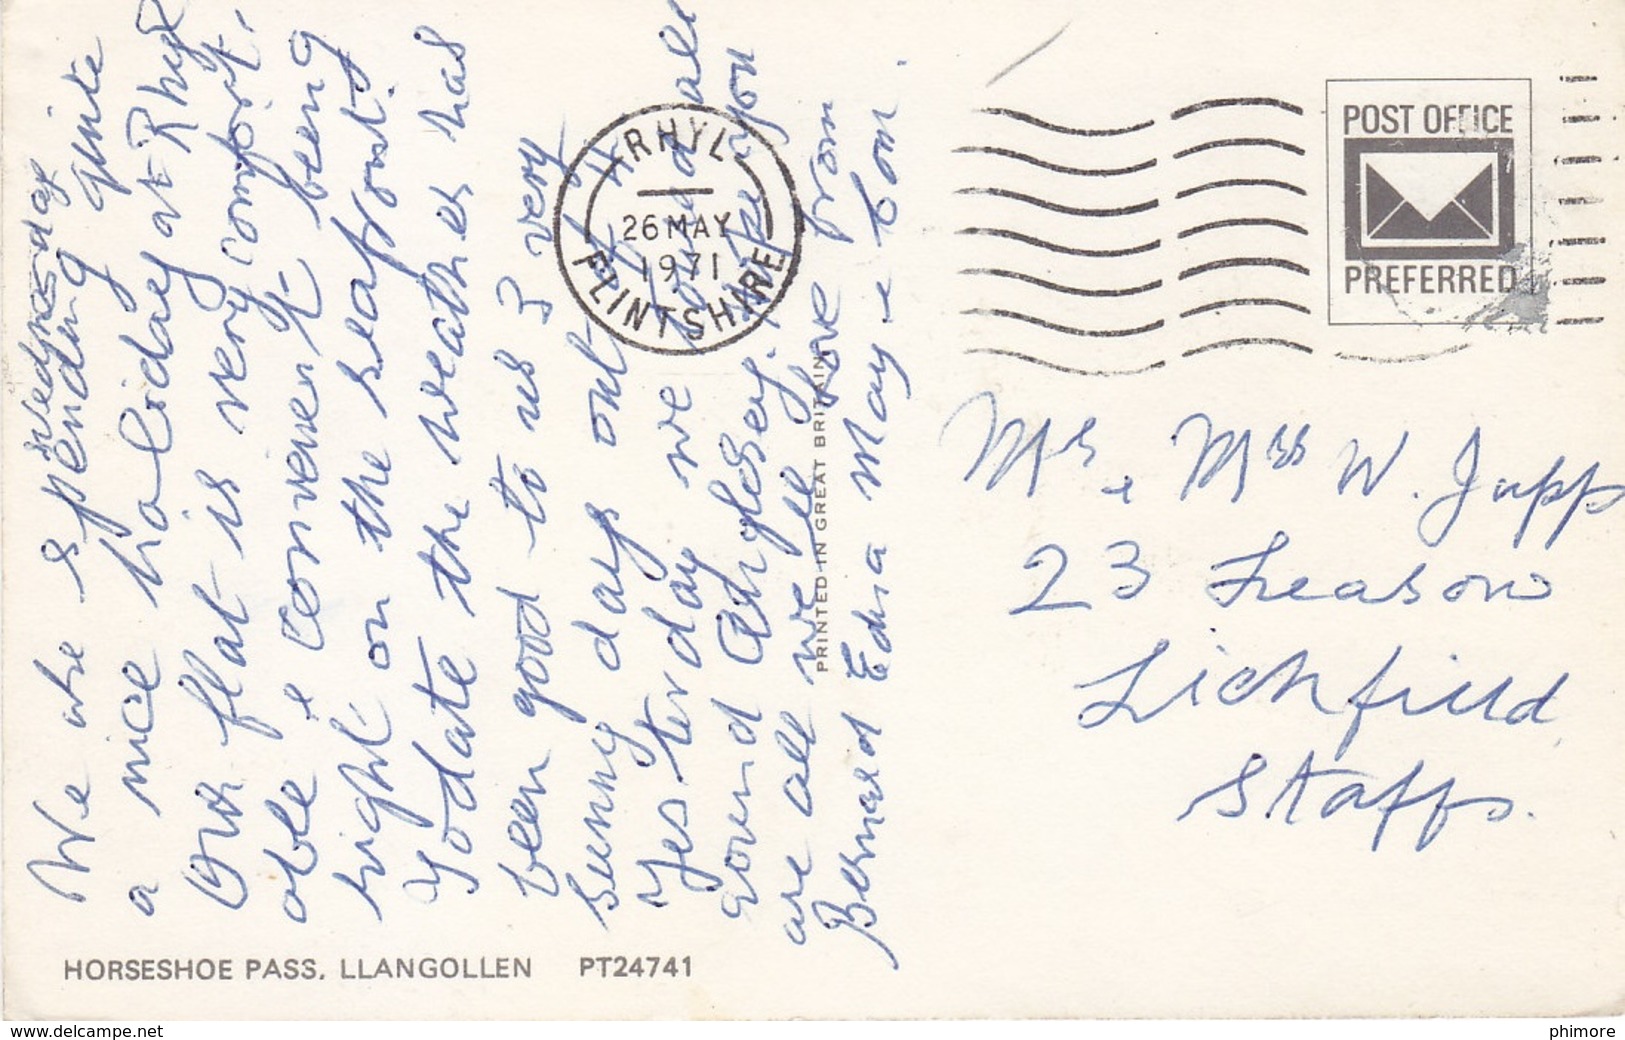 Wednesday
We are spending quite
a nice holiday at Rhyl
Our flat is very comfort,
able & convenient being
right on the seafront.
Todate the weather has
been good to us 3 very
sunny days out of 4
Yesterday we toured all
around Anglesey. Hope you
are all well Love from
Bernard Edna May & Tom.
RHYL
26 MAY
1971
FLINTSHIRE
POST OFFICE
PREFERRED
PRINTED IN GREAT BRITAIN
Mr & Mrs W. Jupp
23 Leasow
Lichfield
Staffs.
HORSESHOE PASS, LLANGOLLEN PT24741
www.delcampe.net
phimore